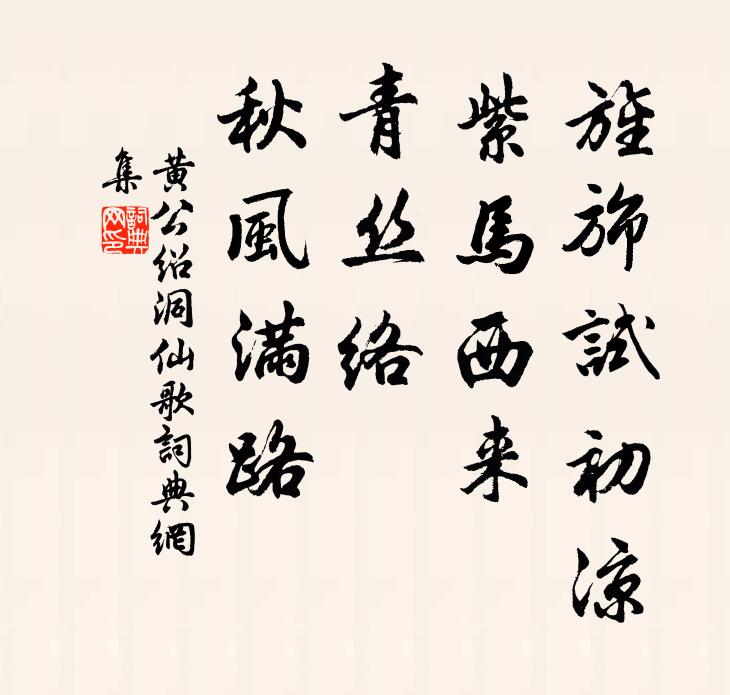 旌旆試初凉
紫馬西来
青丝絡
秋風滿路
黄公紹洞仙歌詞典網
集
詞典
网印